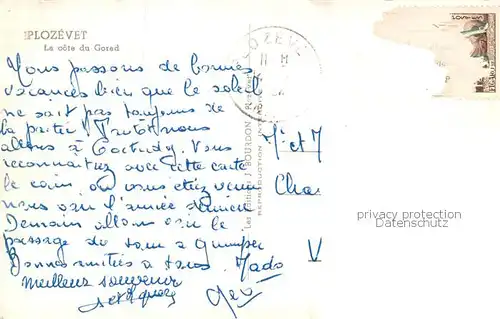 PLOZÉVET
La côte du Gored
Nous passons de bonnes
vacances bien que le soleil
ne soit pas toujours de
la partie! Tantôt nous
allons à Loctudy. Vous
reconnaîtrez avec cette carte
le coin, où vous étiez venu
nous voir l'année dernière
Demain allons voir le
passage du tour à Quimper
Bonnes amitiés à tous. Mado
Meilleur souvenir
Geo
M et M
Cha
V
Les Editions J. BOURDON
REPRODUCTION INTERDITE
PLOZEVET
privacy protection
Datenschutz